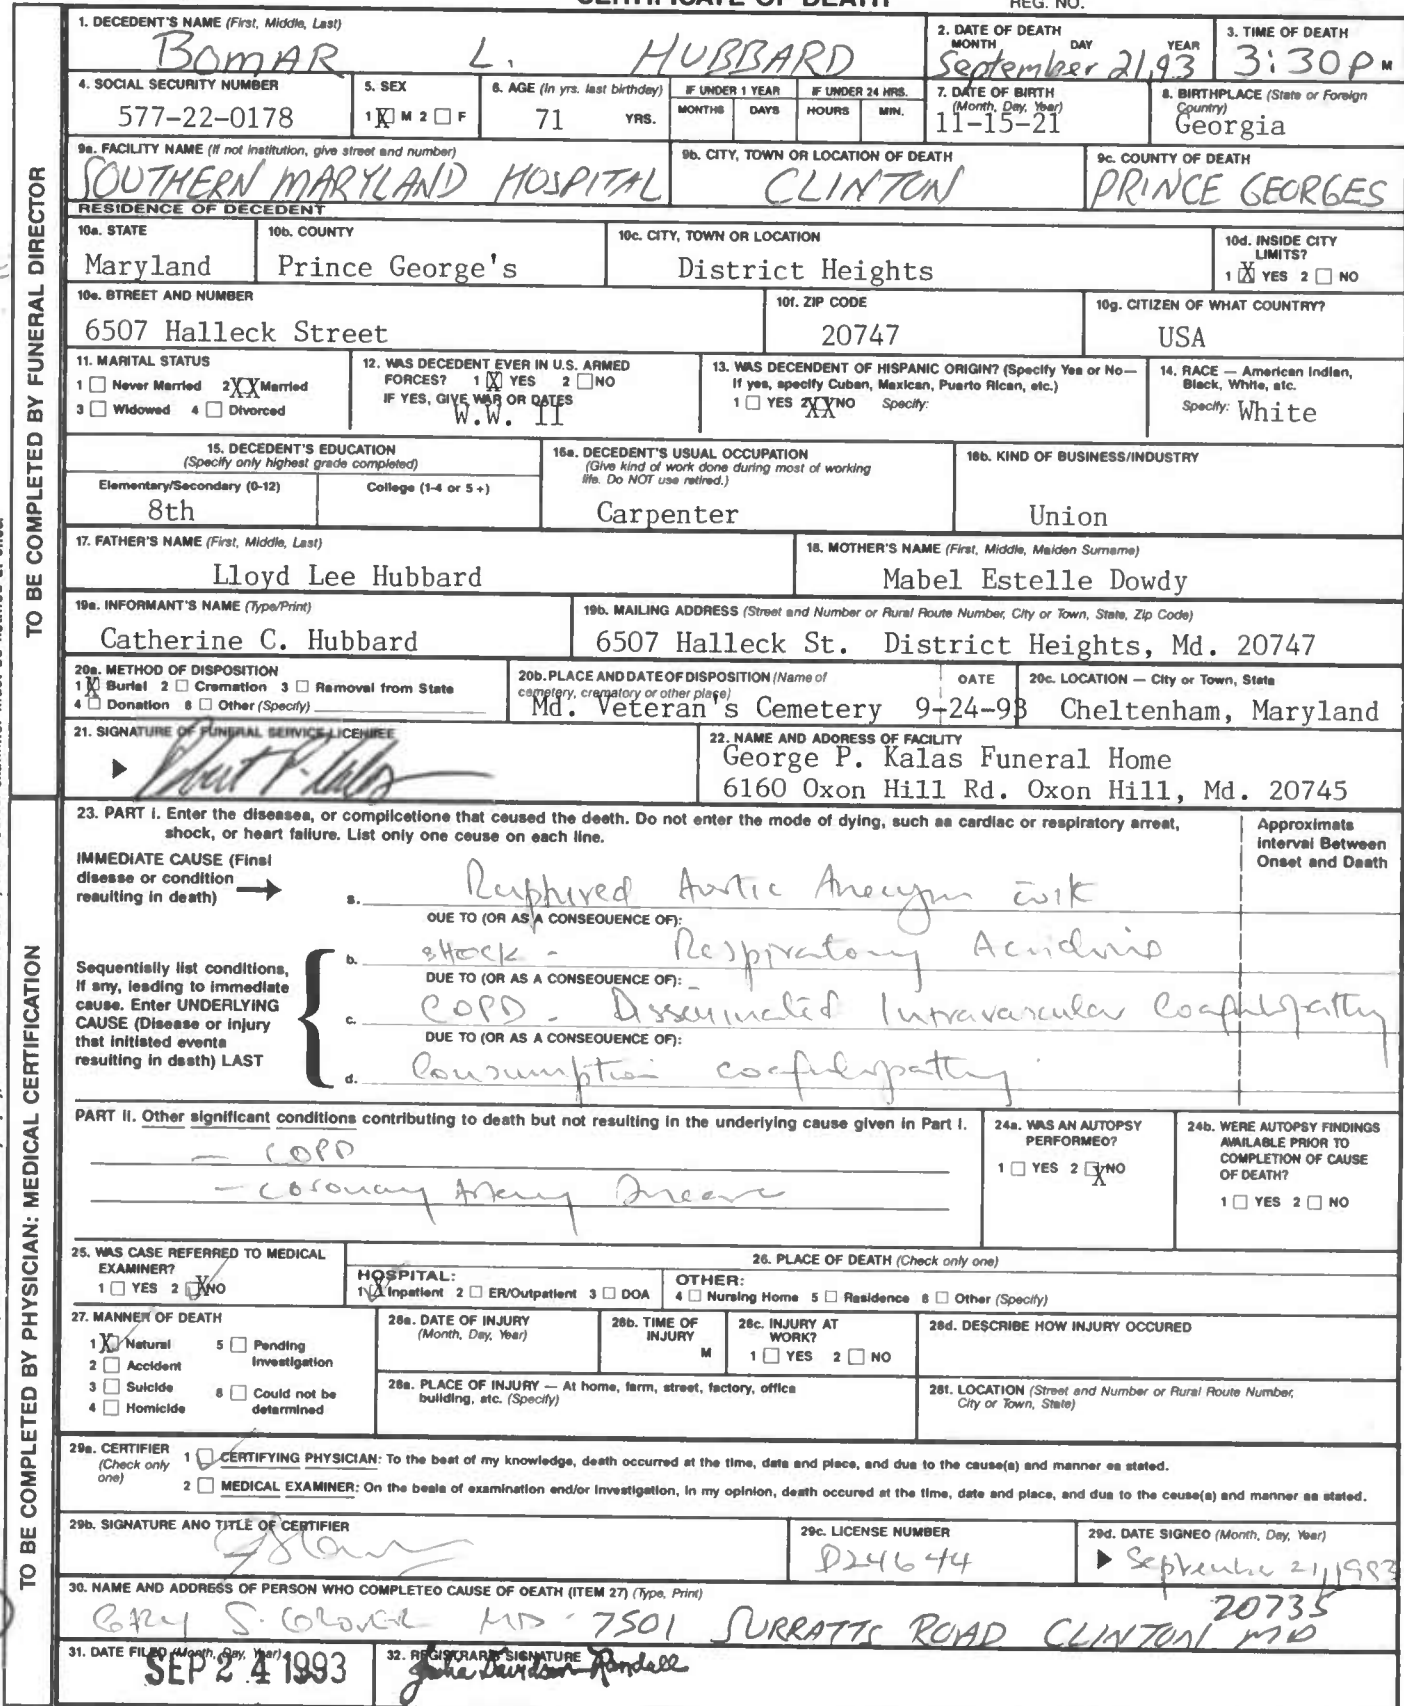 CERTIFICATE OF DEATH
REG. NO.
TO BE COMPLETED BY FUNERAL DIRECTOR
1. DECEDENT'S NAME (First, Middle, Last)
BOMAR L. HUBBARD
2. DATE OF DEATH
MONTH DAY YEAR
September 21, 93
3. TIME OF DEATH
3:30 P M
4. SOCIAL SECURITY NUMBER
577-22-0178
5. SEX
1 X M 2 F
6. AGE (In yrs. last birthday)
71 YRS.
IF UNDER 1 YEAR
MONTHS DAYS
IF UNDER 24 HRS.
HOURS MIN.
7. DATE OF BIRTH
(Month, Day, Year)
11-15-21
8. BIRTHPLACE (State or Foreign
Country)
Georgia
9a. FACILITY NAME (If not institution, give street and number)
SOUTHERN MARYLAND HOSPITAL
9b. CITY, TOWN OR LOCATION OF DEATH
CLINTON
9c. COUNTY OF DEATH
PRINCE GEORGES
RESIDENCE OF DECEDENT
10a. STATE
Maryland
10b. COUNTY
Prince George's
10c. CITY, TOWN OR LOCATION
District Heights
10d. INSIDE CITY
LIMITS?
1 X YES 2 NO
10e. STREET AND NUMBER
6507 Halleck Street
10f. ZIP CODE
20747
10g. CITIZEN OF WHAT COUNTRY?
USA
11. MARITAL STATUS
1 Never Married 2 XX Married
3 Widowed 4 Divorced
12. WAS DECEDENT EVER IN U.S. ARMED
FORCES? 1 X YES 2 NO
IF YES, GIVE WAR OR DATES
W.W. II
13. WAS DECENDENT OF HISPANIC ORIGIN? (Specify Yes or No—
If yes, specify Cuban, Mexican, Puerto Rican, etc.)
1 YES 2 XX NO Specify:
14. RACE — American Indian,
Black, White, etc.
Specify: White
15. DECEDENT'S EDUCATION
(Specify only highest grade completed)
Elementary/Secondary (0-12) College (1-4 or 5+)
8th
16a. DECEDENT'S USUAL OCCUPATION
(Give kind of work done during most of working
life. Do NOT use retired.)
Carpenter
16b. KIND OF BUSINESS/INDUSTRY
Union
17. FATHER'S NAME (First, Middle, Last)
Lloyd Lee Hubbard
18. MOTHER'S NAME (First, Middle, Maiden Surname)
Mabel Estelle Dowdy
19a. INFORMANT'S NAME (Type/Print)
Catherine C. Hubbard
19b. MAILING ADDRESS (Street and Number or Rural Route Number, City or Town, State, Zip Code)
6507 Halleck St. District Heights, Md. 20747
20a. METHOD OF DISPOSITION
1 X Burial 2 Cremation 3 Removal from State
4 Donation 8 Other (Specify)
20b. PLACE AND DATE OF DISPOSITION (Name of
cemetery, crematory or other place)
DATE
Md. Veteran's Cemetery 9-24-93
20c. LOCATION — City or Town, State
Cheltenham, Maryland
21. SIGNATURE OF FUNERAL SERVICE LICENSEE
Robert P. Kalas
22. NAME AND ADDRESS OF FACILITY
George P. Kalas Funeral Home
6160 Oxon Hill Rd. Oxon Hill, Md. 20745
TO BE COMPLETED BY PHYSICIAN: MEDICAL CERTIFICATION
23. PART I. Enter the diseases, or complications that caused the death. Do not enter the mode of dying, such as cardiac or respiratory arrest,
shock, or heart failure. List only one cause on each line.
Approximate
Interval Between
Onset and Death
IMMEDIATE CAUSE (Final
disease or condition
resulting in death)
a. Ruptured Aortic Aneurysm
DUE TO (OR AS A CONSEQUENCE OF):
Sequentially list conditions,
if any, leading to immediate
cause. Enter UNDERLYING
CAUSE (Disease or injury
that initiated events
resulting in death) LAST
b. shock - Respiratory Acidosis
DUE TO (OR AS A CONSEQUENCE OF):
c. COPD - Disseminated Intravascular Coagulopathy
DUE TO (OR AS A CONSEQUENCE OF):
d. Consumption coagulopathy
PART II. Other significant conditions contributing to death but not resulting in the underlying cause given in Part I.
- COPD
- Coronary Artery Disease
24a. WAS AN AUTOPSY
PERFORMED?
1 YES 2 X NO
24b. WERE AUTOPSY FINDINGS
AVAILABLE PRIOR TO
COMPLETION OF CAUSE
OF DEATH?
1 YES 2 NO
25. WAS CASE REFERRED TO MEDICAL
EXAMINER?
1 YES 2 X NO
26. PLACE OF DEATH (Check only one)
HOSPITAL:
1 X Inpatient 2 ER/Outpatient 3 DOA
OTHER:
4 Nursing Home 5 Residence 6 Other (Specify)
27. MANNER OF DEATH
1 X Natural 5 Pending
Investigation
2 Accident
3 Suicide 6 Could not be
determined
4 Homicide
28a. DATE OF INJURY
(Month, Day, Year)
28b. TIME OF
INJURY
M
28c. INJURY AT
WORK?
1 YES 2 NO
28d. DESCRIBE HOW INJURY OCCURED
28e. PLACE OF INJURY — At home, farm, street, factory, office
building, etc. (Specify)
28f. LOCATION (Street and Number or Rural Route Number,
City or Town, State)
29a. CERTIFIER
(Check only
one)
1 CERTIFYING PHYSICIAN: To the best of my knowledge, death occurred at the time, date and place, and due to the cause(s) and manner as stated.
2 MEDICAL EXAMINER: On the basis of examination and/or investigation, in my opinion, death occured at the time, date and place, and due to the cause(s) and manner as stated.
29b. SIGNATURE AND TITLE OF CERTIFIER
29c. LICENSE NUMBER
D24644
29d. DATE SIGNED (Month, Day, Year)
September 21, 1993
30. NAME AND ADDRESS OF PERSON WHO COMPLETED CAUSE OF DEATH (ITEM 27) (Type, Print)
S. MD 7501 SURRATTS ROAD CLINTON MD 20735
31. DATE FILED (Month, Day, Year)
SEP 24 1993
32. REGISTRAR'S SIGNATURE
Davidson Randall